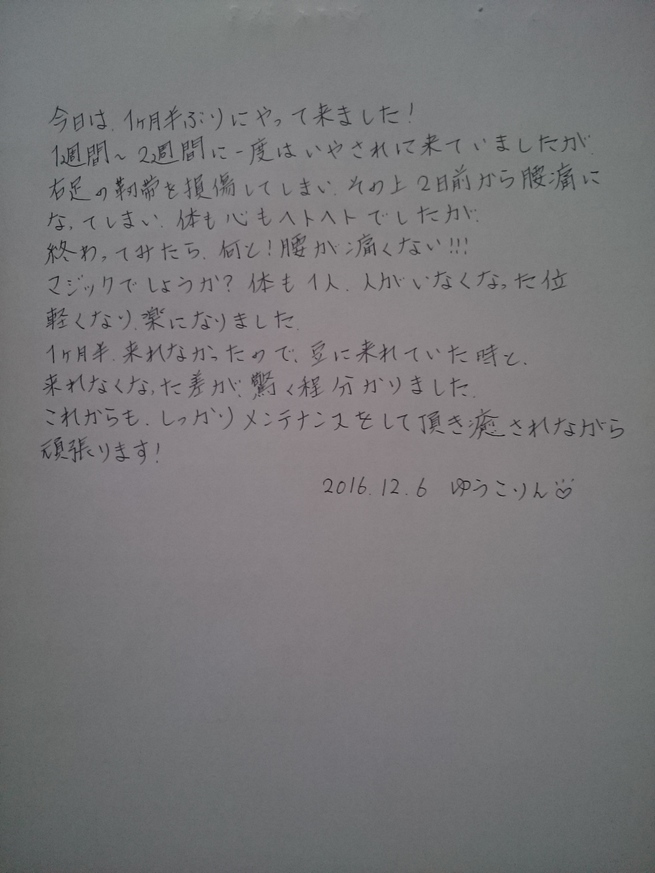 今日は、1ヶ月半ぶりにやって来ました!
1週間~2週間に一度はいやされに来ていましたが、
右足の靭帯を損傷してしまい、その上2日前から腰痛に
なってしまい、体も心もヘトヘトでしたが、
終わってみたら、何と!腰が痛くない!!!
マジックでしょうか?体も1人、人がいなくなった位
軽くなり、楽になりました。
1ヶ月半、来れなかったので、豆に来れていた時と、
来れなくなった差が、驚く程分かりました。
これからも、しっかりメンテナンスをして頂き癒されながら
頑張ります!
2016.12.6 ゆうこりん♡